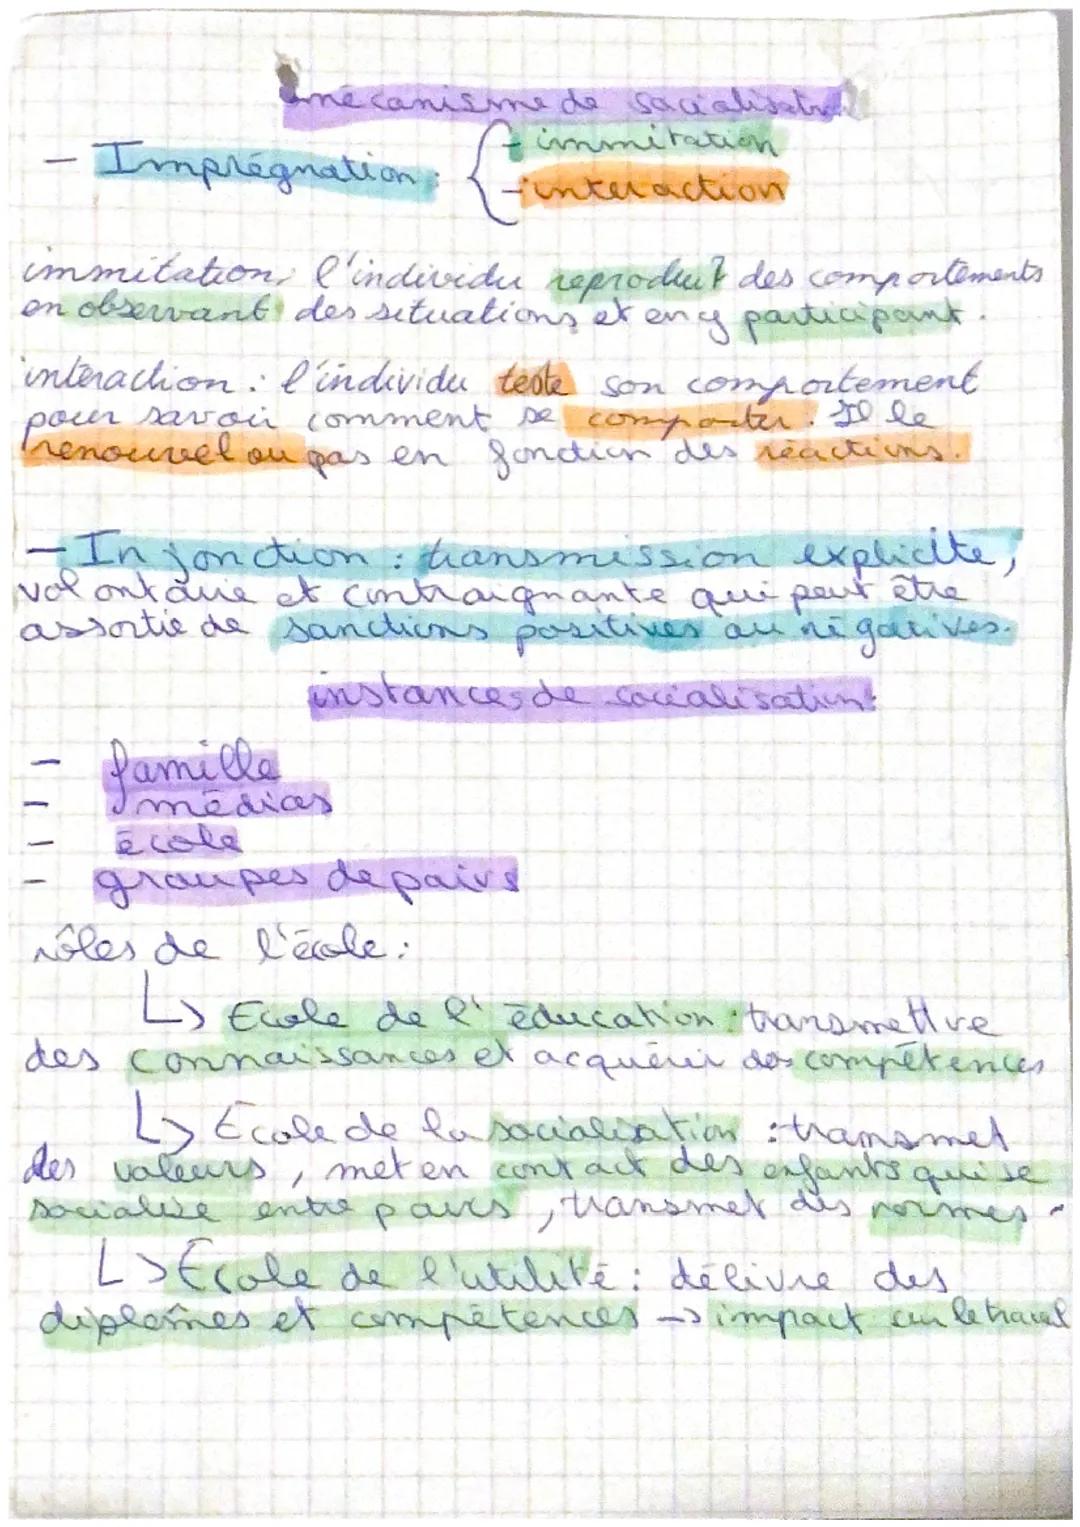 mécanisme de socialisation
- Imprégnation : { - immitation
- interaction
immitation, l'individu reproduit des comportements
en observant des situations et en y participant.
interaction : l'individu teste son comportement
pour savoir comment se comporter. Il le
renouvel ou pas en fonction des réactions.
- Injonction : transmission explicite,
volontaire et contraignante qui peut être
assortie de sanctions positives ou négatives.
instances de socialisation:
- famille
- médias
- école
- groupes de pairs
rôles de l'école :
↳ Ecole de l'éducation : transmettre
des connaissances et acquérir des compétences
↳ Ecole de la socialisation : transmet
des valeurs, met en contact des enfants qui se
socialise entre pairs, transmet des normes.
↳ Ecole de l'utilité : délivre des
diplômes et compétences → impact sur le travail